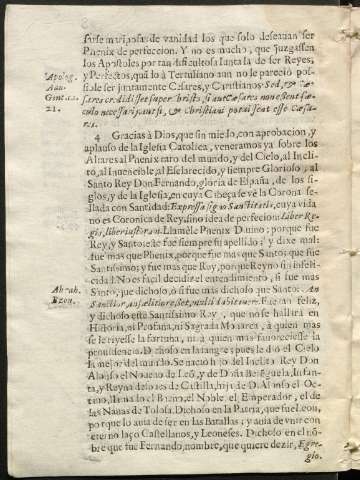 por ſe mariposas de vanidad los que ſolo deſeauan ſer
Phenix de perfeccion. Y no es mucho, que juzgaſſen
los Apoſtoles por tan dificultoſa ſanta la de ſer Reyes,
y Perfectos, quãdo à Tertuliano aun no le pareciò poſ-
ſible ſer juntamente Ceſares, y Chriſtianos. Sed, & Cæ-
ſares credidiſſent ſuper Chriſto, ſi aut Cæſares non eſſent ſæ-
culo neceſſarij, aut ſi, & Chriſtiani potuiſſent eſſe Cæſa-
res.
Apolog.
Adu.
Gent. c.
21.
4 Gracias à Dios, que ſin miedo, con aprobacion, y
aplauſo de la Igleſia Catolica, veneramos ya ſobre los
Altares al Phenix raro del mundo, y del Cielo, al Incli-
to, al Inuencible, al Eſclarecido, y ſiempre Glorioſo; al
Santo Rey Don Fernando, gloria de Eſpaña, de los ſi-
glos, y de la Igleſia, en cuya Cabeça ſe vè la Corona ſe-
llada con Santidad: Expreſſa ſigno Sanctitatis, cuya vida
no es Coronica de Rey, ſino idea de perfeccion: Liber Re-
gis, liber iuſtorum. Llamèle Phenix Diuino; porque fue
Rey, y Santo: este fue ſiempre ſu apellido; y dixe mal:
fue mas que Phenix, porque fue mas que Santo: que fue
Santiſsimo; y fue mas que Rey, porque Reyno ſin infeli-
cidad. No es facil decidir el entendimiento, ſi fue mas
Santo, que dichoſo, ò ſi fue mas dichoſo que Santo. An
Sanctior, an fælicior eſſet, multi dubitauere. Fue tan feliz,
y dichoſo eſte Santiſsimo Rey, que no ſe hallarà en
Hiſtoria, ni Profana, ni Sagrada Monarca, à quien mas
ſe le rieſſe la fortuna, ni à quien mas fauorecieſſe la
prouidencia. Dichoſo en la ſangre; pues le diò el Cielo
la mejor del mundo. Se nació hijo del Inclito Rey Don
Alonſo el Noueno de Leõ, y de Doña Berẽguela, Infan-
ta, y Reyna deſpues de Caſtilla, hija de D. Alonſo el Oc-
tauo, llamado el Bueno, el Noble, el Emperador, el de
las Nauas de Toloſa. Dichoſo en la Patria, que fue Leon,
porque lo auia de ſer en las Batallas; y auia de vnir con
eterno laço Caſtellanos, y Leoneſes. Dichoſo en el nõ-
bre que fue Fernando, nombre, que quiere dezir, Egre-
gio.
Abrah.
Bzou.